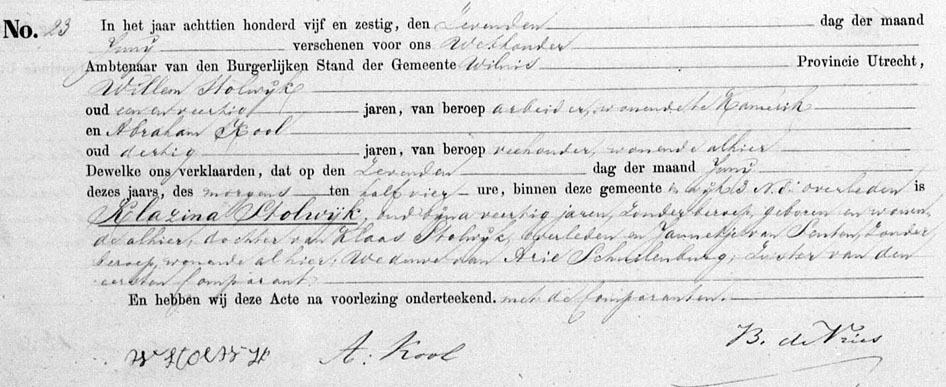 No. 23 In het jaar achttien honderd vijf en zestig, den Zevenden dag der maand
Juny verschenen voor ons Wethouder
Ambtenaar van den Burgerlijken Stand der Gemeente Wilnis Provincie Utrecht,
Willem Stolwijk
oud een en veertig jaren, van beroep arbeider, wonende te Kamerik
en Abraham Kool
oud dertig jaren, van beroep veehouder, wonende alhier
Dewelke ons verklaarden, dat op den Zevenden dag der maand Juny
dezes jaars, des morgens ten half vier ure, binnen deze gemeente in wijk B. N. overleden is
Klazina Stolwijk, oud byna veertig jaren, zonder beroep, geboren en wonen-
de alhier, dochter van Klaas Stolwijk, overleden en Jannekje van Senten, zonder
beroep, wonende alhier; Weduwe van Arie Schuilenburg; Zuster van den
eersten Comparant.
En hebben wij deze Acte na voorlezing onderteekend. met de Comparanten.
W STOLWYK A: Kool B. de Vries